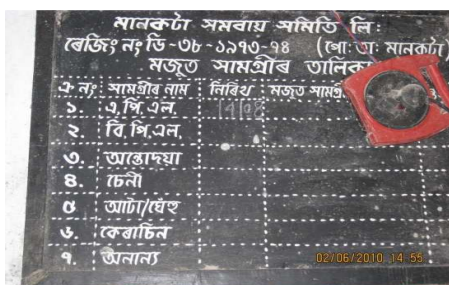 মানকটা সমবায় সমিতি লিঃ
ৰেজিঃ নং ডি-৩৮-১৯৭৩-৭৪ (পোঃ তাঃ মানকটা)
মজুত সামগ্ৰীৰ তালিকা
ক্ৰ নং সামগ্ৰীৰ নাম নিৰিখ মজুত
১. এ.পি.এল.
২. বি.পি.এল.
৩. অন্তোদয়া
৪. চেনী
৫ আটা/ঘেঁহু
৬. কেৰাচিন
৭. অনান্য
02/06/2010 14 55